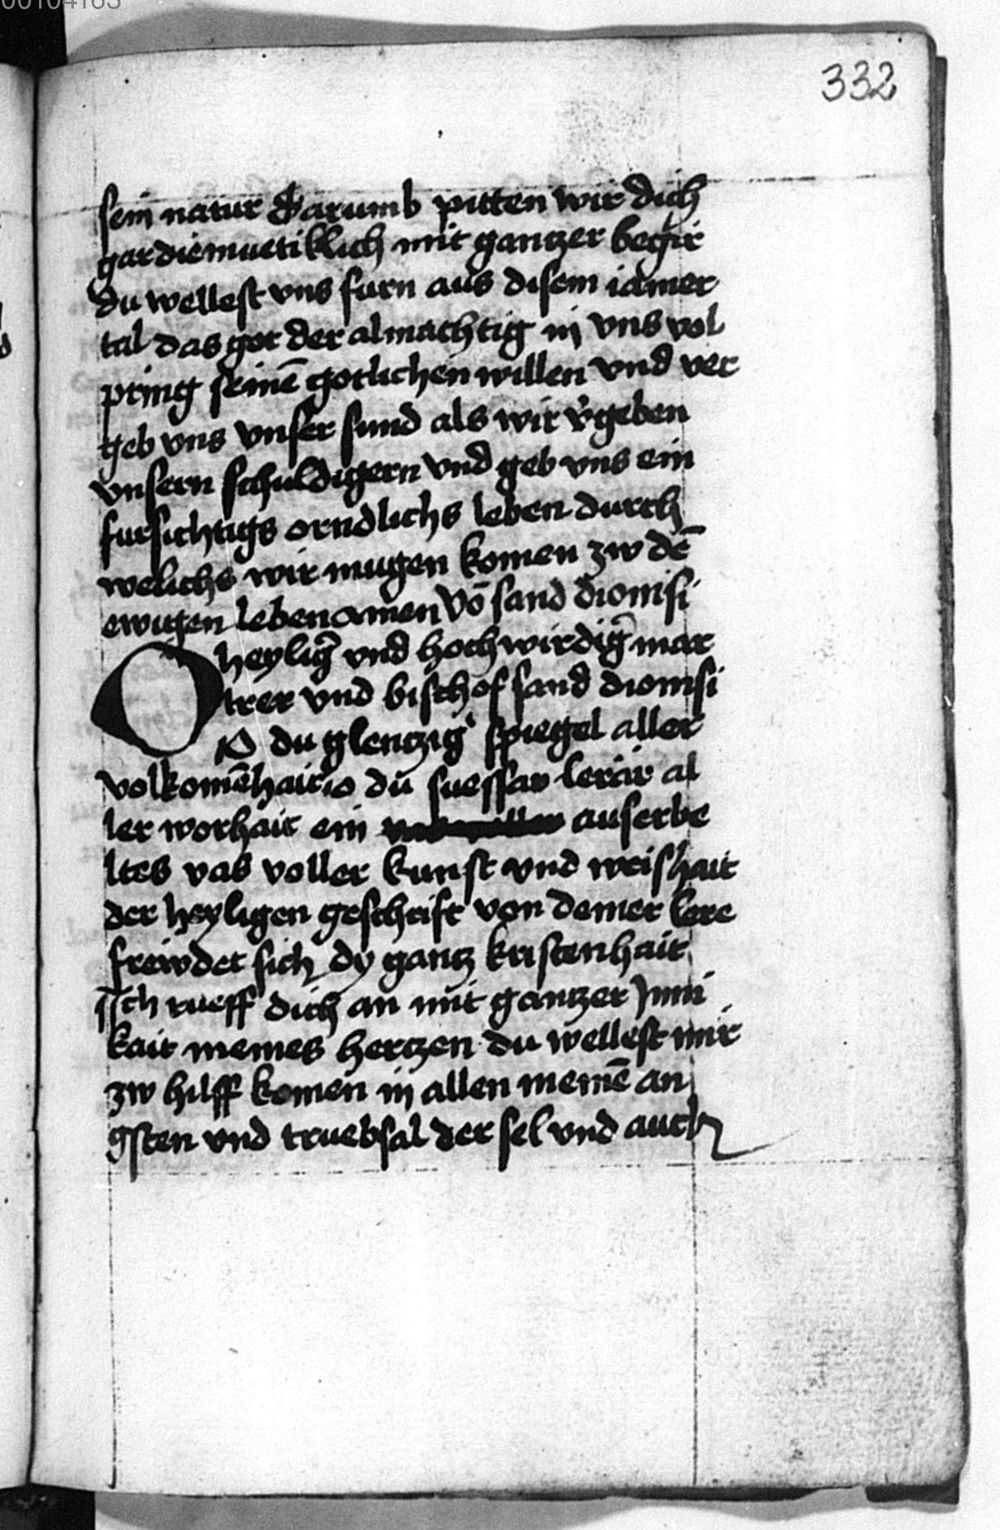 00104163
332
sein natur Darumb pitten wir dich
gar diemuetiklich mit gantzer begir
du wellest vns furn aus disem iamer
tal das got der almachtig in vns vol
pring seinē gotlichen willen vnd ver
geb vns vnser sund als wir v̄geben
vnsern schuldigern vnd geb vns ein
fursichtigs orndlichs leben durch
welichs wir mugen komen zw dē
ewigen leben amen Vō sand dionisi
O heyliḡ vnd hochwirdiḡ mar
trer vnd bischof sand dionisi
O du glentziḡ spiegel aller
volkomēhait io du suessar lerar al
ler worhait ein auserbe
ltes vas voller kunst vnd weishait
der heyligen geschrift von deiner lere
frewdet sich dy gantz kristenhait
Jch rueff dich an mit gantzer Jnni
kait meines hertzen du wellest mir
zw hilff komen in allen meinē an
gsten vnd truebsal der sel vnd auch